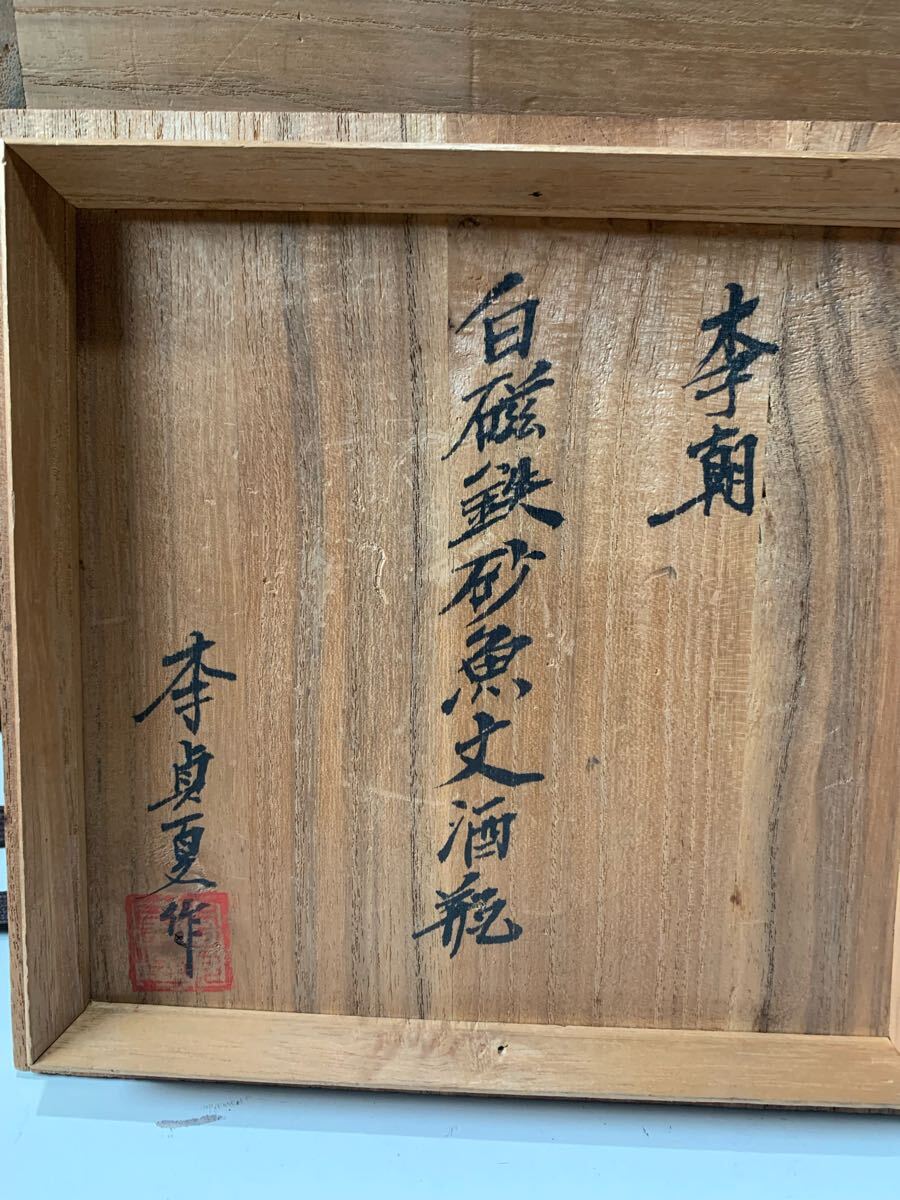 李朝
白磁鉄砂魚文酒瓶
李貞夏作